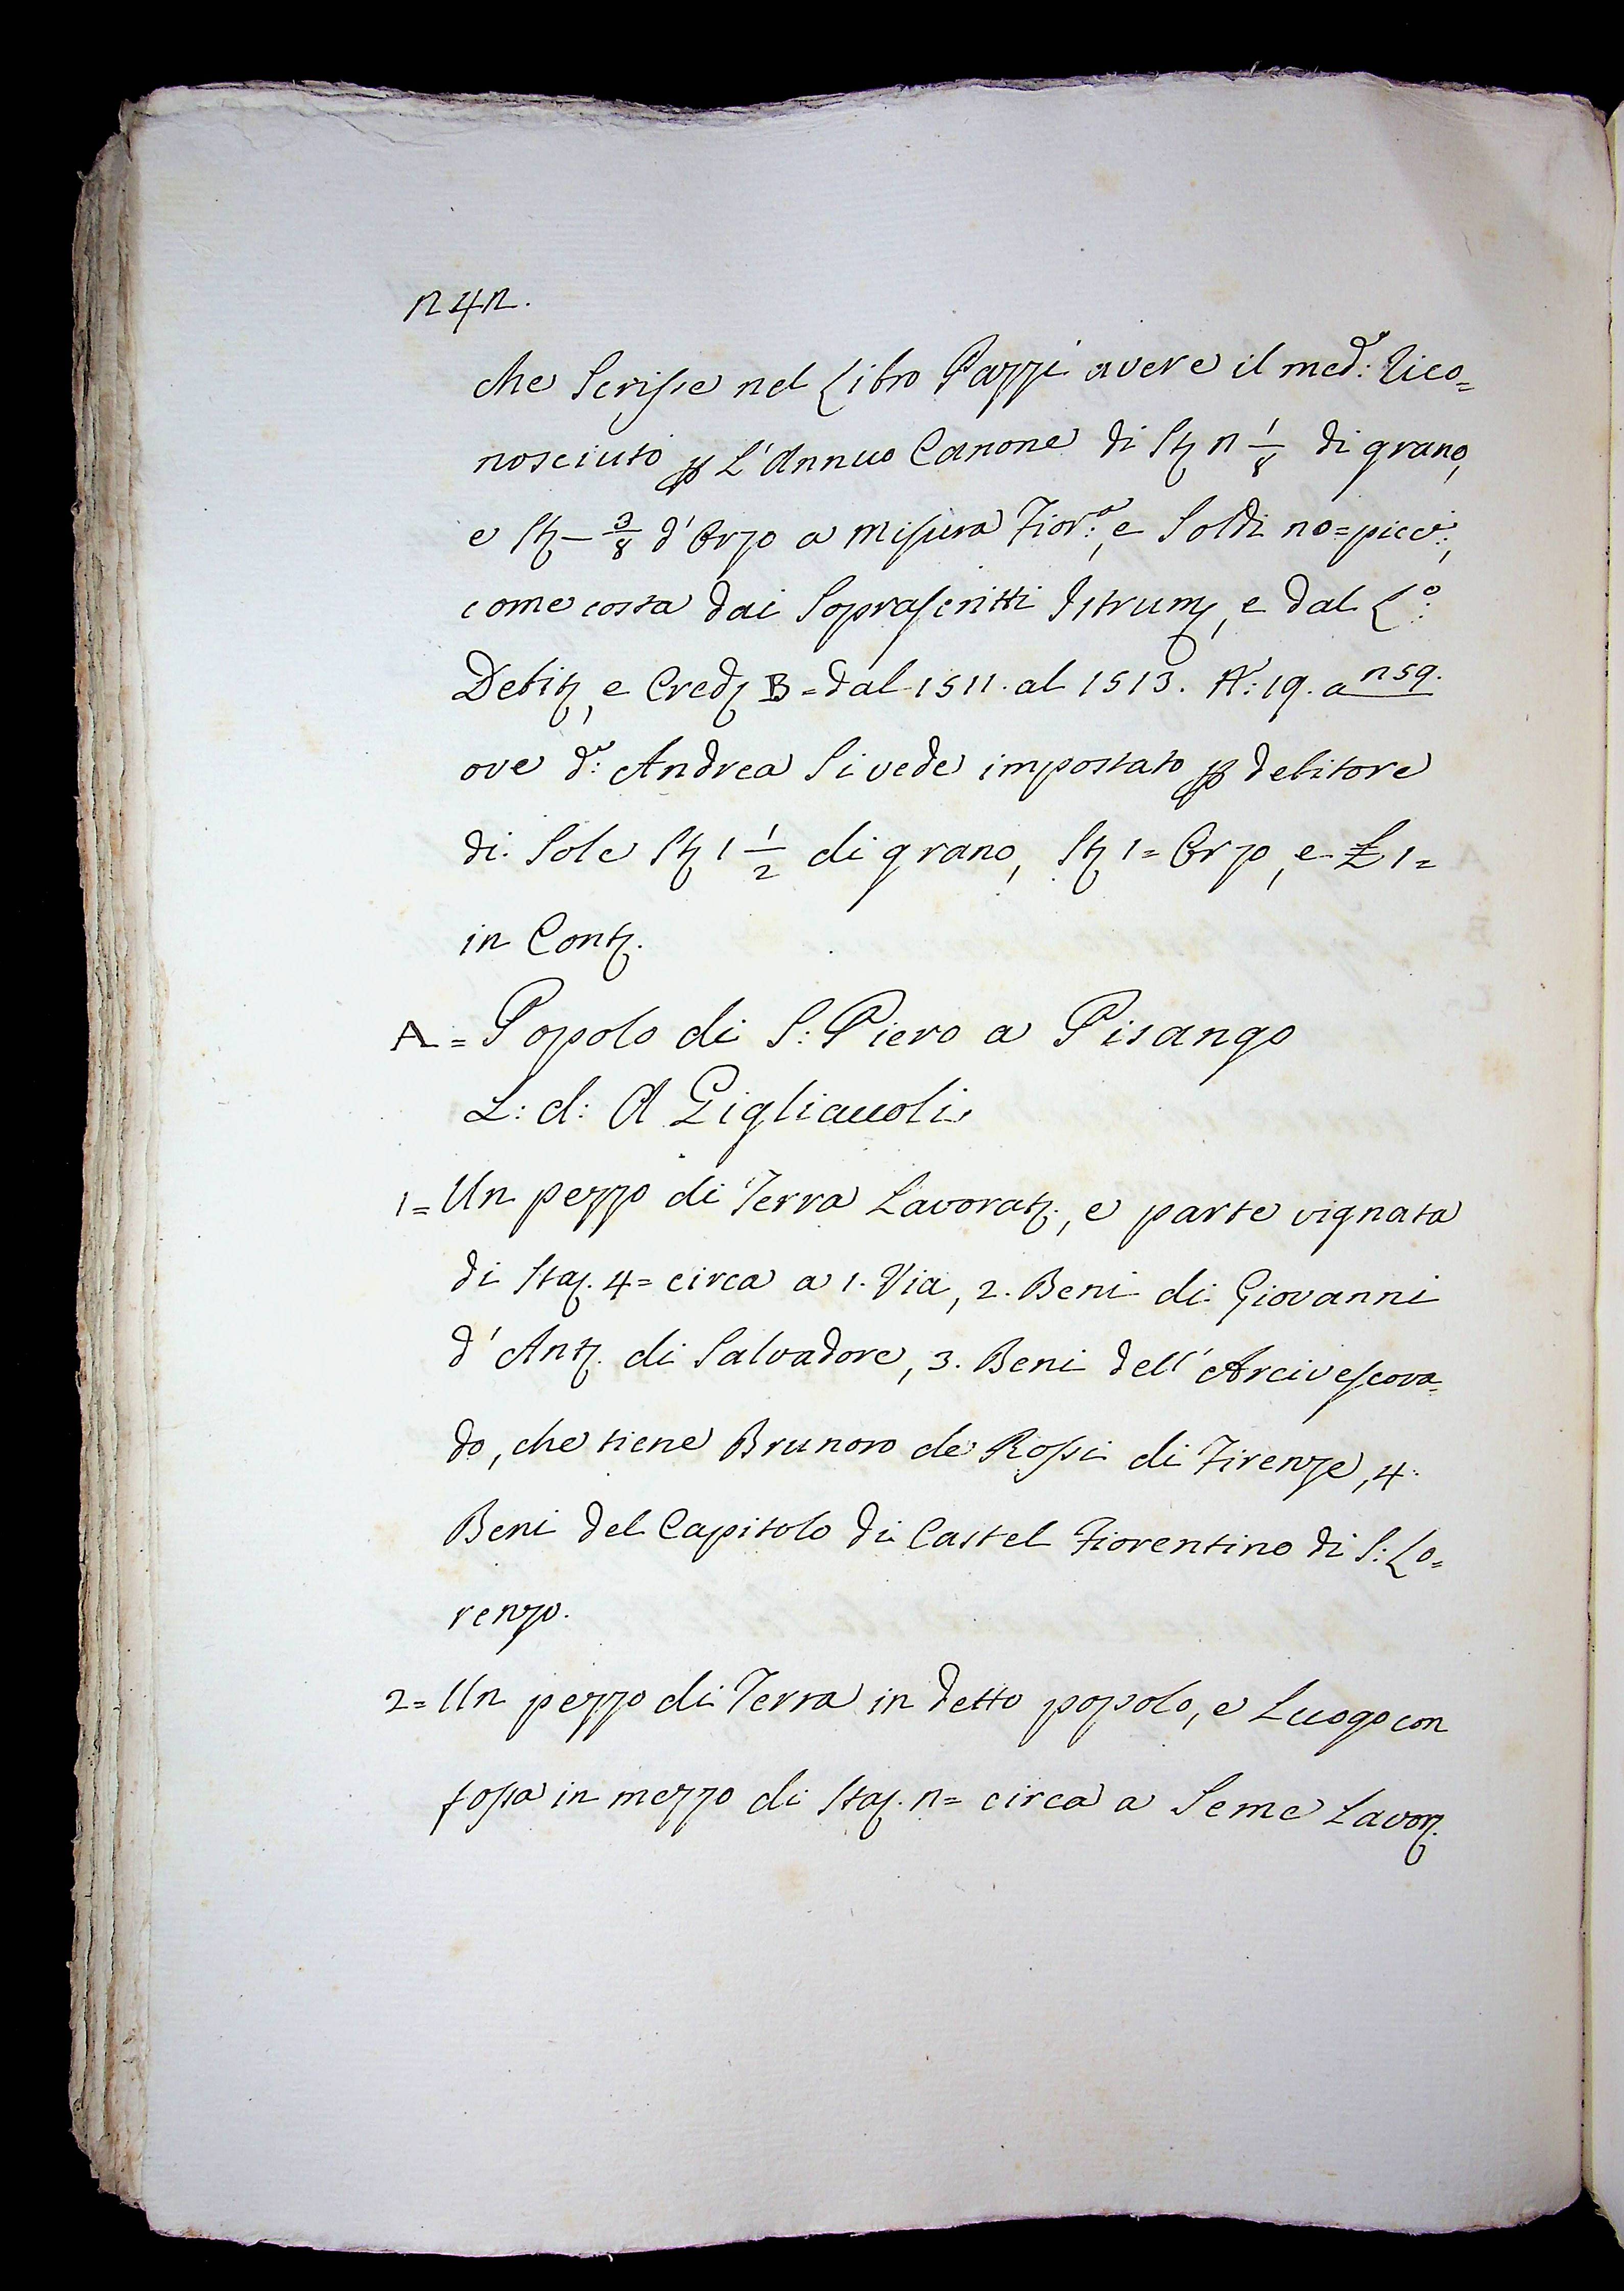 242.
che Scrisse nel Libro Pazzi avere il med.º: Rico=
nosciuto p L'Annuo Canone di Stã 2 1/8 di grano,
e Stã - 3/8 d'Orzo a misura Fior.ª:, e Soldi 20= picc.i:,
come costa dai Soprascritti Istrumã, e dal L.º:
Debitã, e Credã B= dal 1511. al 1513. N.º: 19. a 259.
ove d.º: Andrea Si vede impostato p debitore
di Sole Stã 1 1/2 di grano, Stã 1= Orzo, e £ 1=
in Contã.
A = Popolo di S: Piero a Pisango
L: d: A Gigliauoli
1= Un pezzo di Terra Lavoratã., e parte vignata
di Staã. 4= circa a 1. Via, 2. Beni di Giovanni
d'Antã. di Salvadore, 3. Beni dell'Arcivescova=
do, che tiene Brunoro de Rossi di Firenze, 4.
Beni del Capitolo di Castel Fiorentino di S: Lo=
renzo.
2= Un pezzo di Terra in detto popolo, e Luogo con
fossa in mezzo di Staã. 2= circa a Seme Lavorã.